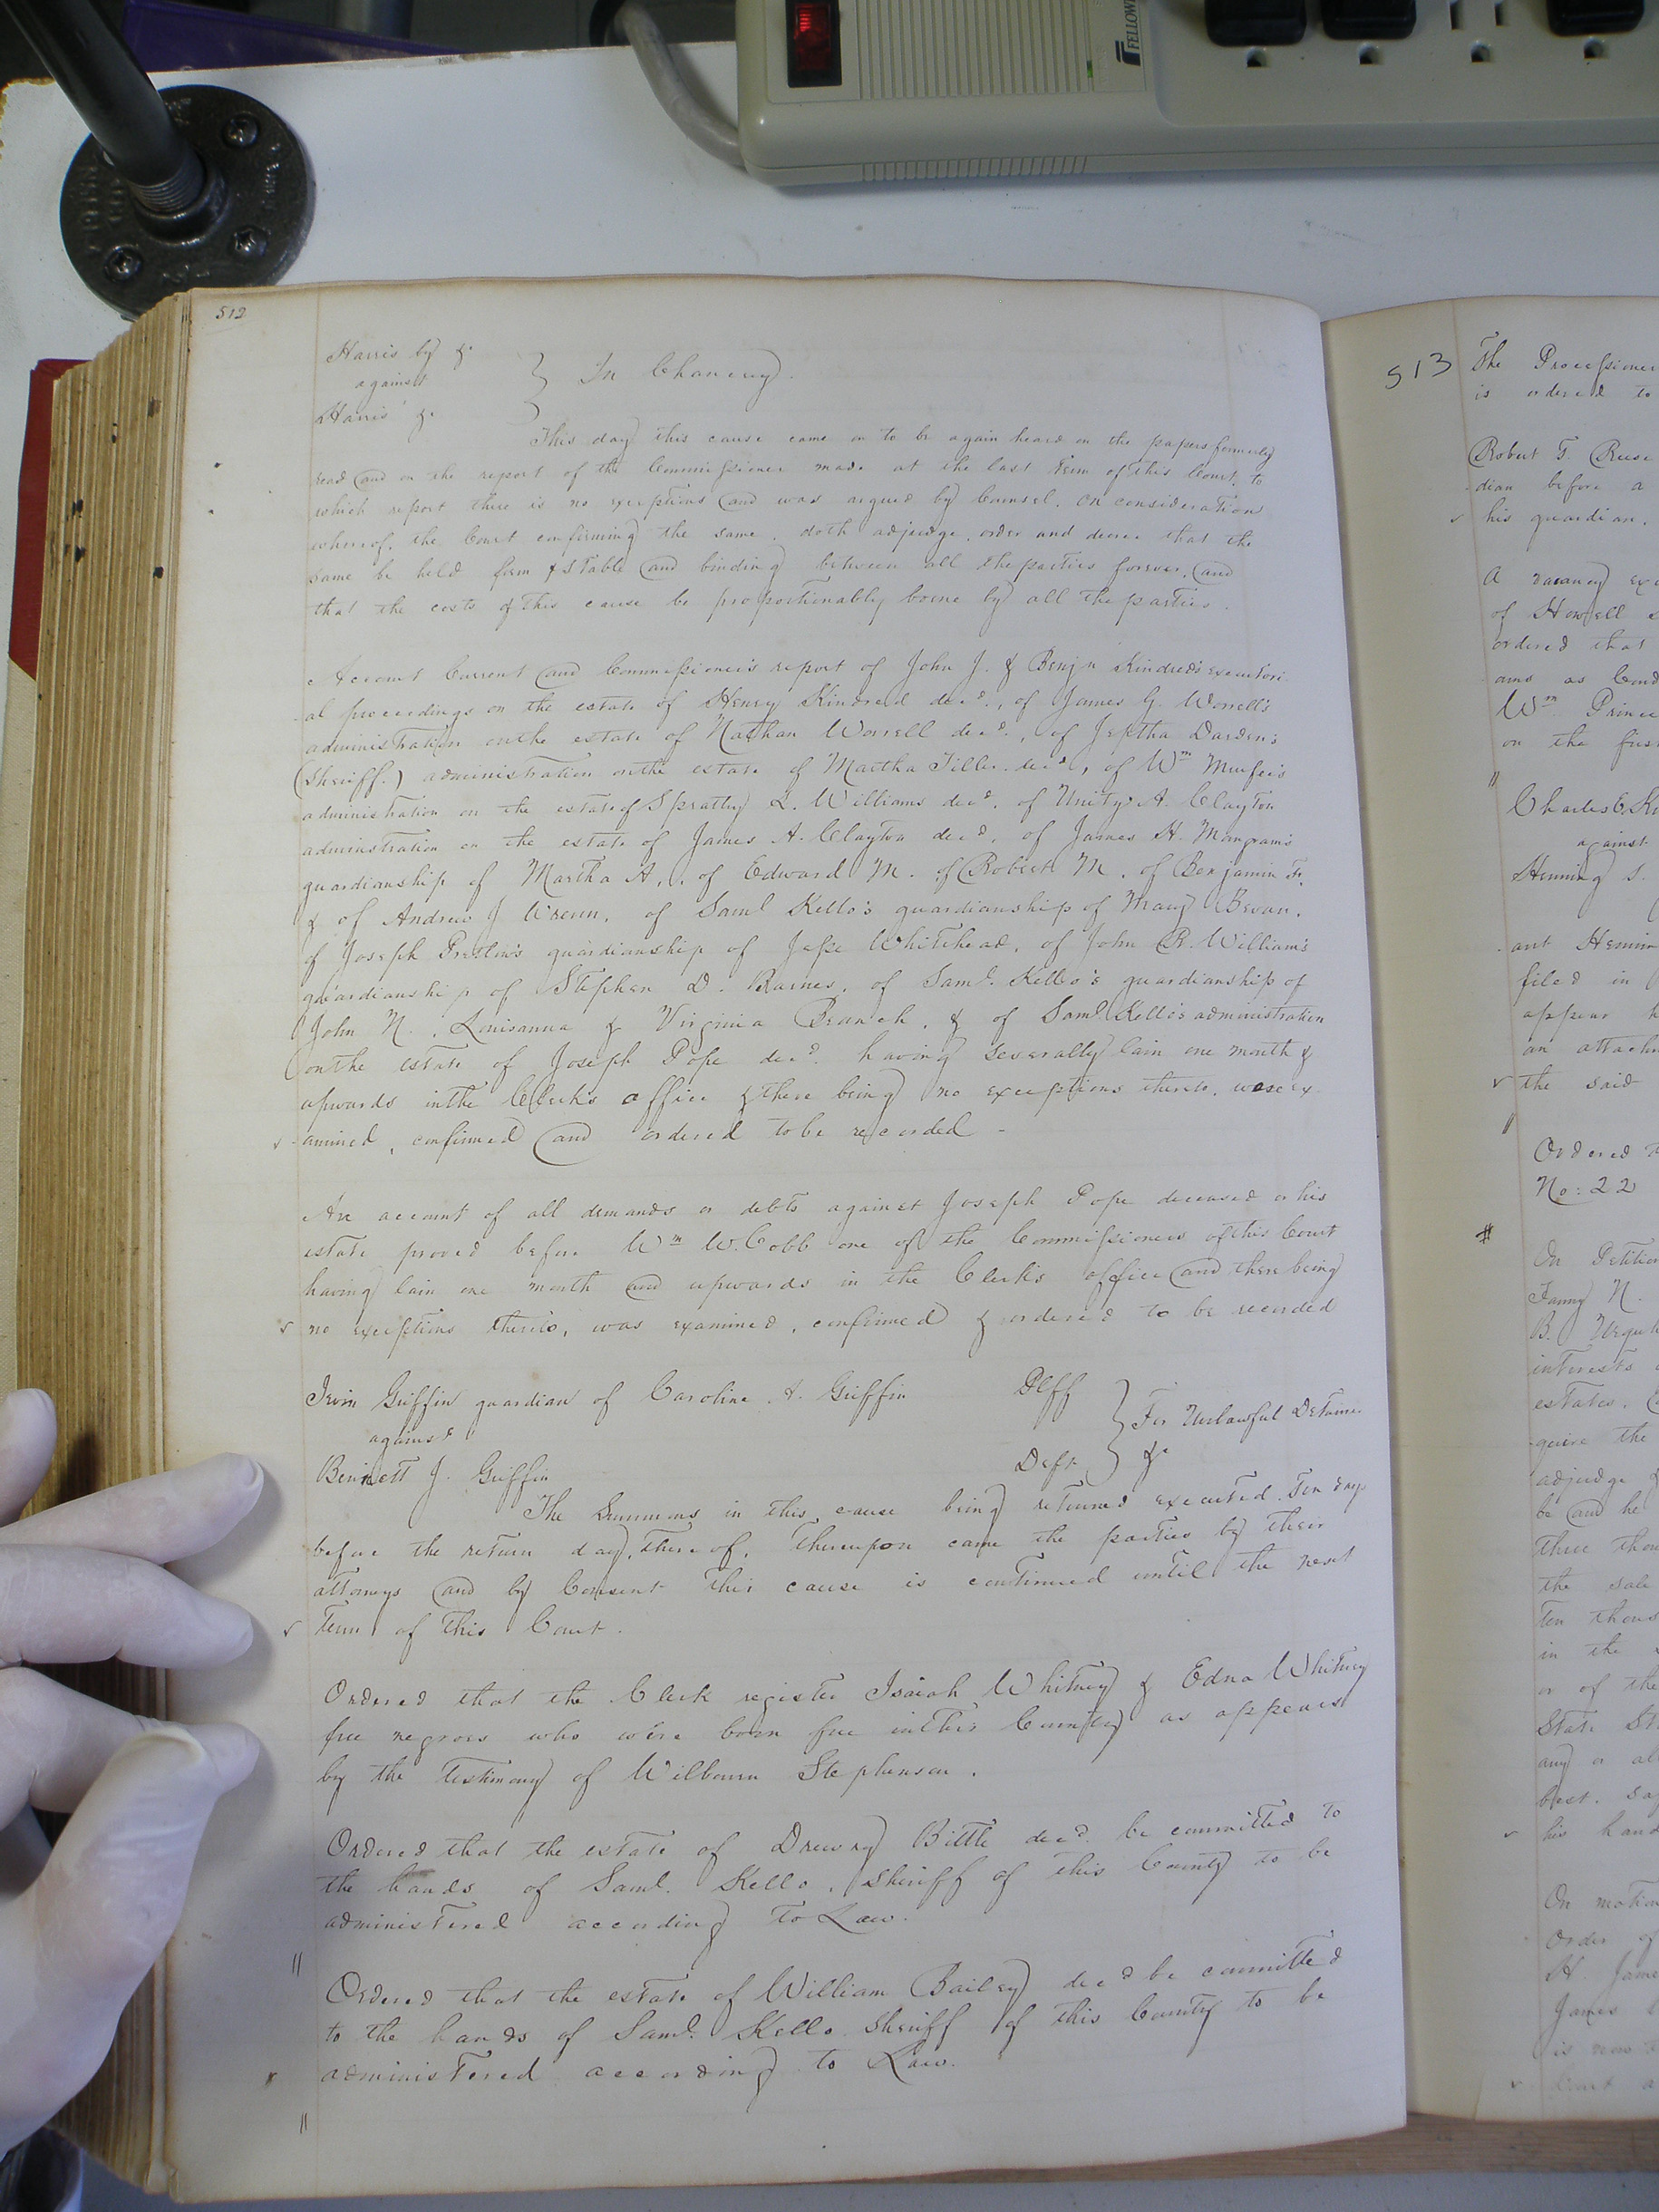 FELLOW
512
Harris by &c
against } In Chancery.
Harris &c.
This day this cause came on to be again heard on the papers formerly
read and on the report of the Commissioner made at the last term of this Court, to
which report there is no exceptions and was argued by Counsel. On consideration
whereof, the Court confirming the same, doth adjudge, order and decree that the
same be held firm & stable and binding between all the parties forever, and
that the costs of this cause be proportionably borne by all the parties.
Account Current and Commissioner's report of John J. & Benjn Kindred's executori-
al proceedings on the estate of Henry Kindred decd., of James G. Worrell's
administration on the estate of Nathan Worrell decd., of Jeptha Darden's
(Sheriff.) administration on the estate of Martha Tiller decd, of Wm Murfee's
administration on the estate of Spratley L. Williams decd. of Unity A. Clayton
administration on the estate of James A. Clayton decd, of James H. Mangram's
guardianship of Martha A., of Edward M. of Robert M. of Benjamin F.
& of Andrew J Wrenn, of Saml Kello's guardianship of Mary Bevan,
of Joseph Preston's guardianship of Jesse Whitehead, of John R. William's
guardianship of Stephen D. Barnes, of Saml. Kello's guardianship of
John N., Louisanna & Virginia Branch, & of Saml Kello's administration
on the estate of Joseph Pope decd. having severally lain one month &
upwards in the Clerk's office & there being no exceptions thereto, were ex-
amined, confirmed and ordered to be recorded -
An account of all demands or debts against Joseph Pope deceased or his
estate proved before Wm W. Cobb one of the Commissioners of this Court
having lain one month and upwards in the Clerk's office and there being
no exceptions thereto, was examined, confirmed & ordered to be recorded
Irvin Griffin guardian of Caroline A. Griffin Plff
against } For Unlawful Detainer
Bennett J. Griffin Deft &c
The Summons in this cause being returned executed ten days
before the return day, thereof, Thereupon came the parties by their
attorneys and by Consent this cause is continued until the next
term of this Court.
Ordered that the Clerk register Isaiah Whitney & Edna Whitney
free negroes who were born free in this County as appears
by the testimony of Wilbourn Stephenson.
Ordered that the estate of Drewry Bittle decd. be committed to
the hands of Saml. Kello, Sheriff of this County to be
administered according to Law.
Ordered that the estate of William Bailey decd be committed
to the hands of Saml. Kello Sheriff of this County to be
administered according to Law.
513
The Processioner
is ordered to
Robert T. Reese
dian before a
his guardian.
A vacancy
of Howell
ordered that
ams as
Wm Prince
on the
Charles
against
Henning S.
ant
filed in
appear
an
the said
Ordered
No: 22
On Petition
Fanny N.
B.
interests
estates.
quire the
adjudge
be and he
three
the sale
Ten
in the
or of the
State
any or
best.
his hand
On motion
Order of
H. James
James
is now